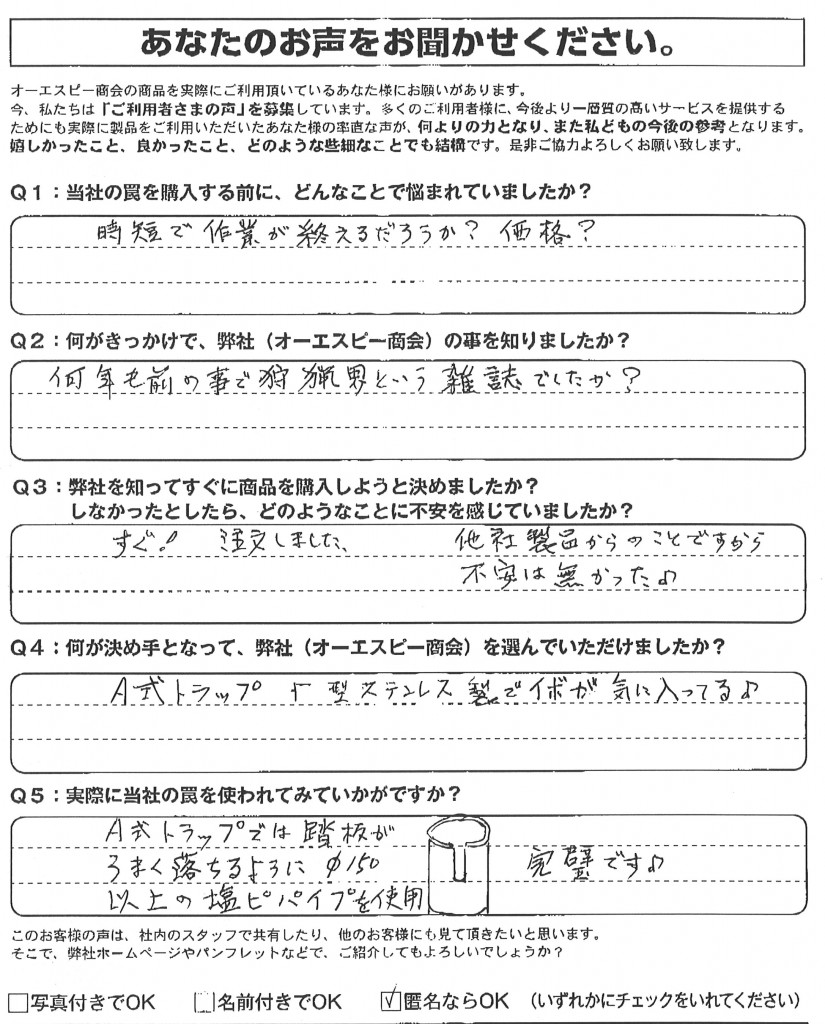 あなたのお声をお聞かせください。
オーエスピー商会の商品を実際にご利用頂いているあなた様にお願いがあります。
今、私たちは「ご利用者さまの声」を募集しています。多くのご利用者様に、今後より一層質の高いサービスを提供する
ためにも実際に製品をご利用いただいたあなた様の率直な声が、何よりの力となり、また私どもの今後の参考となります。
嬉しかったこと、良かったこと、どのような些細なことでも結構です。是非ご協力よろしくお願い致します。
Q1：当社の罠を購入する前に、どんなことで悩まれていましたか？
時短で作業が終えるだろうか？ 価格？
Q2：何がきっかけで、弊社（オーエスピー商会）の事を知りましたか？
何年も前の事で狩猟界という雑誌でしたか？
Q3：弊社を知ってすぐに商品を購入しようと決めましたか？
しなかったとしたら、どのようなことに不安を感じていましたか？
すぐ！ 注文しました、 他社製品からのことですから
不安は無かった♪
Q4：何が決め手となって、弊社（オーエスピー商会）を選んでいただけましたか？
A式トラップ 型ステンレス製でイボが気に入ってる♪
Q5：実際に当社の罠を使われてみていかがですか？
A式トラップでは踏板が
うまく落ちるように φ150 完璧です♪
以上の塩ビパイプを使用
このお客様の声は、社内のスタッフで共有したり、他のお客様にも見て頂きたいと思います。
そこで、弊社ホームページやパンフレットなどで、ご紹介してもよろしいでしょうか？
□写真付きでOK □名前付きでOK ☑匿名ならOK （いずれかにチェックをいれてください）